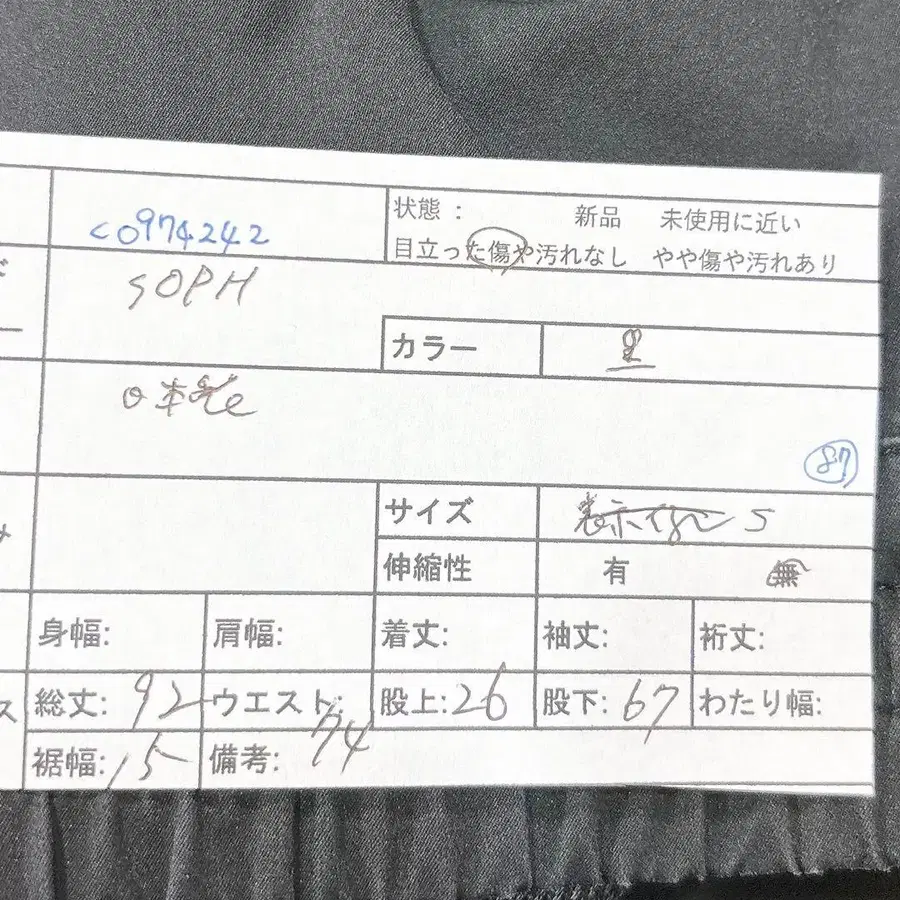 C0974242
状態：　新品　未使用に近い
目立った傷や汚れなし　やや傷や汚れあり
SOPH
カラー　黒
日本製
87
サイズ　表示サイズ S
伸縮性　有　無
身幅:　肩幅:　着丈:　袖丈:　裄丈:
総丈: 92　ウエスト: 74　股上: 26　股下: 67　わたり幅:
裾幅: 15　備考: